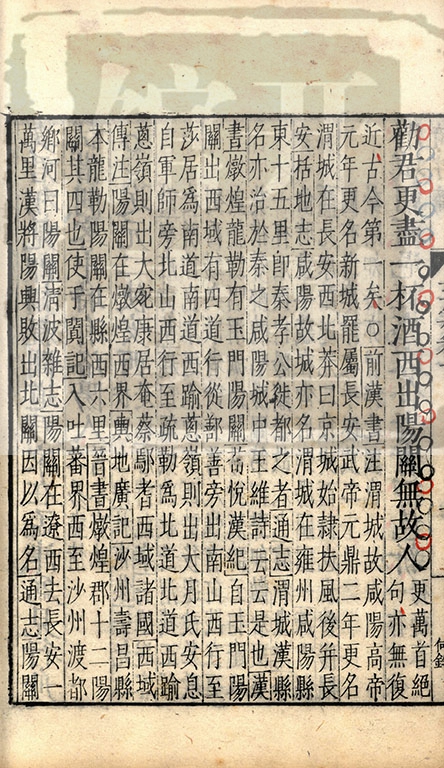 勸君更盡一杯酒西出陽關無故人更萬首絕句亦無復
近古今第一矣○前漢書注渭城故咸陽高帝
元年更名新城罷屬長安武帝元鼎二年更名
渭城在長安西北莽曰京城始隸扶風後并長
安括地志咸陽故城亦名渭城在雍州咸陽縣
東十五里卽秦孝公徙都之者通志渭城漢縣
名亦治於秦之咸陽城中王維詩云云是也漢
書燉煌龍勒有玉門陽關荀悅漢紀自玉門陽
關出西域有四道行從鄯善旁出南山西行至
莎居爲南道南道西踰蔥嶺則出大月氏安息
自軍師旁北山西行至疏勒爲北道北道西踰
蔥嶺則出大宛康居奄蔡鄢耆西域諸國西域
傳注陽關在燉煌西界輿地廣記沙州壽昌縣
本龍勒陽關在縣西六里晉書燉煌郡十二陽
關其四也使于闐記入吐蕃界西至沙州渡都
鄉河曰陽關淸波雜志陽關在遼西去長安一
萬里漢將陽興敗出北關因以爲名通志陽關